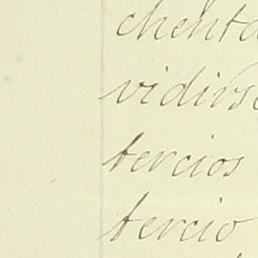 chenta
vidirse
tercios
tercio